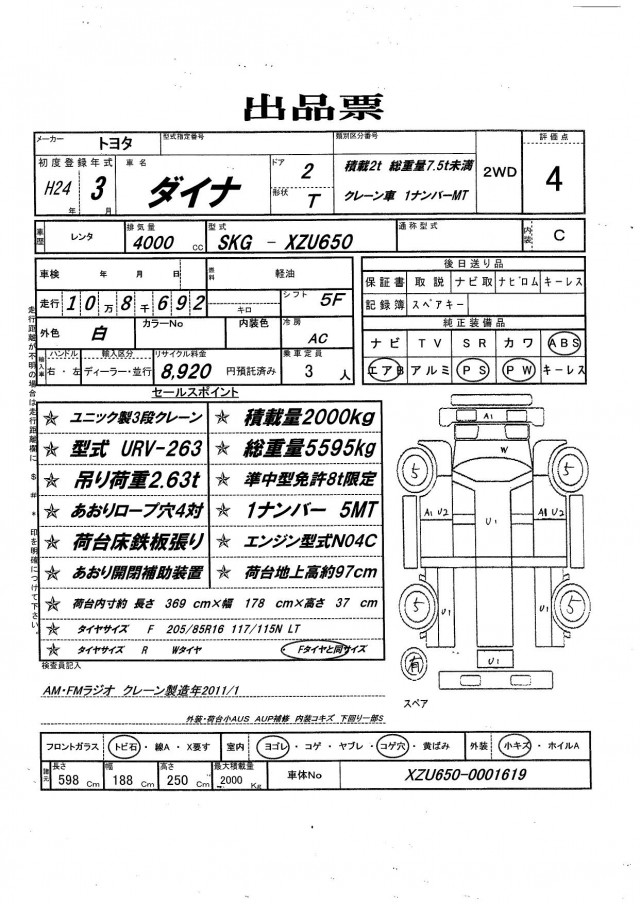 出品票
メーカー トヨタ 型式指定番号 類別区分番号 評価点
初度登録年式 車名 ドア 2 積載2t 総重量7.5t未満 2WD 4
H24年 3月 ダイナ 形状 T クレーン車 1ナンバーMT
車歴 レンタ 排気量 4000 cc 型式 SKG - XZU650 通称型式 内装 C
車検 年 月 日 燃料 軽油 後日送り品
保証書 取説 ナビ取 ナビロム キーレス
走行 10万8千692 キロ シフト 5F 記録簿 スペアキー
外色 白 カラーNo 内装色 冷房 AC 純正装備品
ナビ TV SR カワ ABS
輸入車 ハンドル 右・左 輸入区分 ディーラー・並行 リサイクル料金 8,920 円預託済み 乗車定員 3 人
エアB アルミ PS PW キーレス
セールスポイント
☆ ユニック製3段クレーン ☆ 積載量2000kg
☆ 型式 URV-263 ☆ 総重量5595kg
☆ 吊り荷重2.63t ☆ 準中型免許8t限定
☆ あおりロープ穴4対 ☆ 1ナンバー 5MT
☆ 荷台床鉄板張り ☆ エンジン型式N04C
☆ あおり開閉補助装置 ☆ 荷台地上高約97cm
☆ 荷台内寸約 長さ 369 cm×幅 178 cm×高さ 37 cm
☆ タイヤサイズ F 205/85R16 117/115N LT
☆ タイヤサイズ R Wタイヤ Fタイヤと同サイズ
走行距離が不明の場合は走行距離欄に $ # * 印を明確につけて下さい。
A1
W
5 5
A1 U2 U1 A1 U2
5 U1 U1 5
有 U1
スペア
検査員記入
AM・FMラジオ クレーン製造年2011/1
外装・荷台小AUS AUP補修 内装コキズ 下回り一部S
フロントガラス トビ石・線A・X要す 室内 ヨゴレ・コゲ・ヤブレ・コゲ穴・黄ばみ 外装 小キズ・ホイルA
諸元 長さ 598 Cm 幅 188 Cm 高さ 250 Cm 最大積載量 2000 Kg 車体No XZU650-0001619